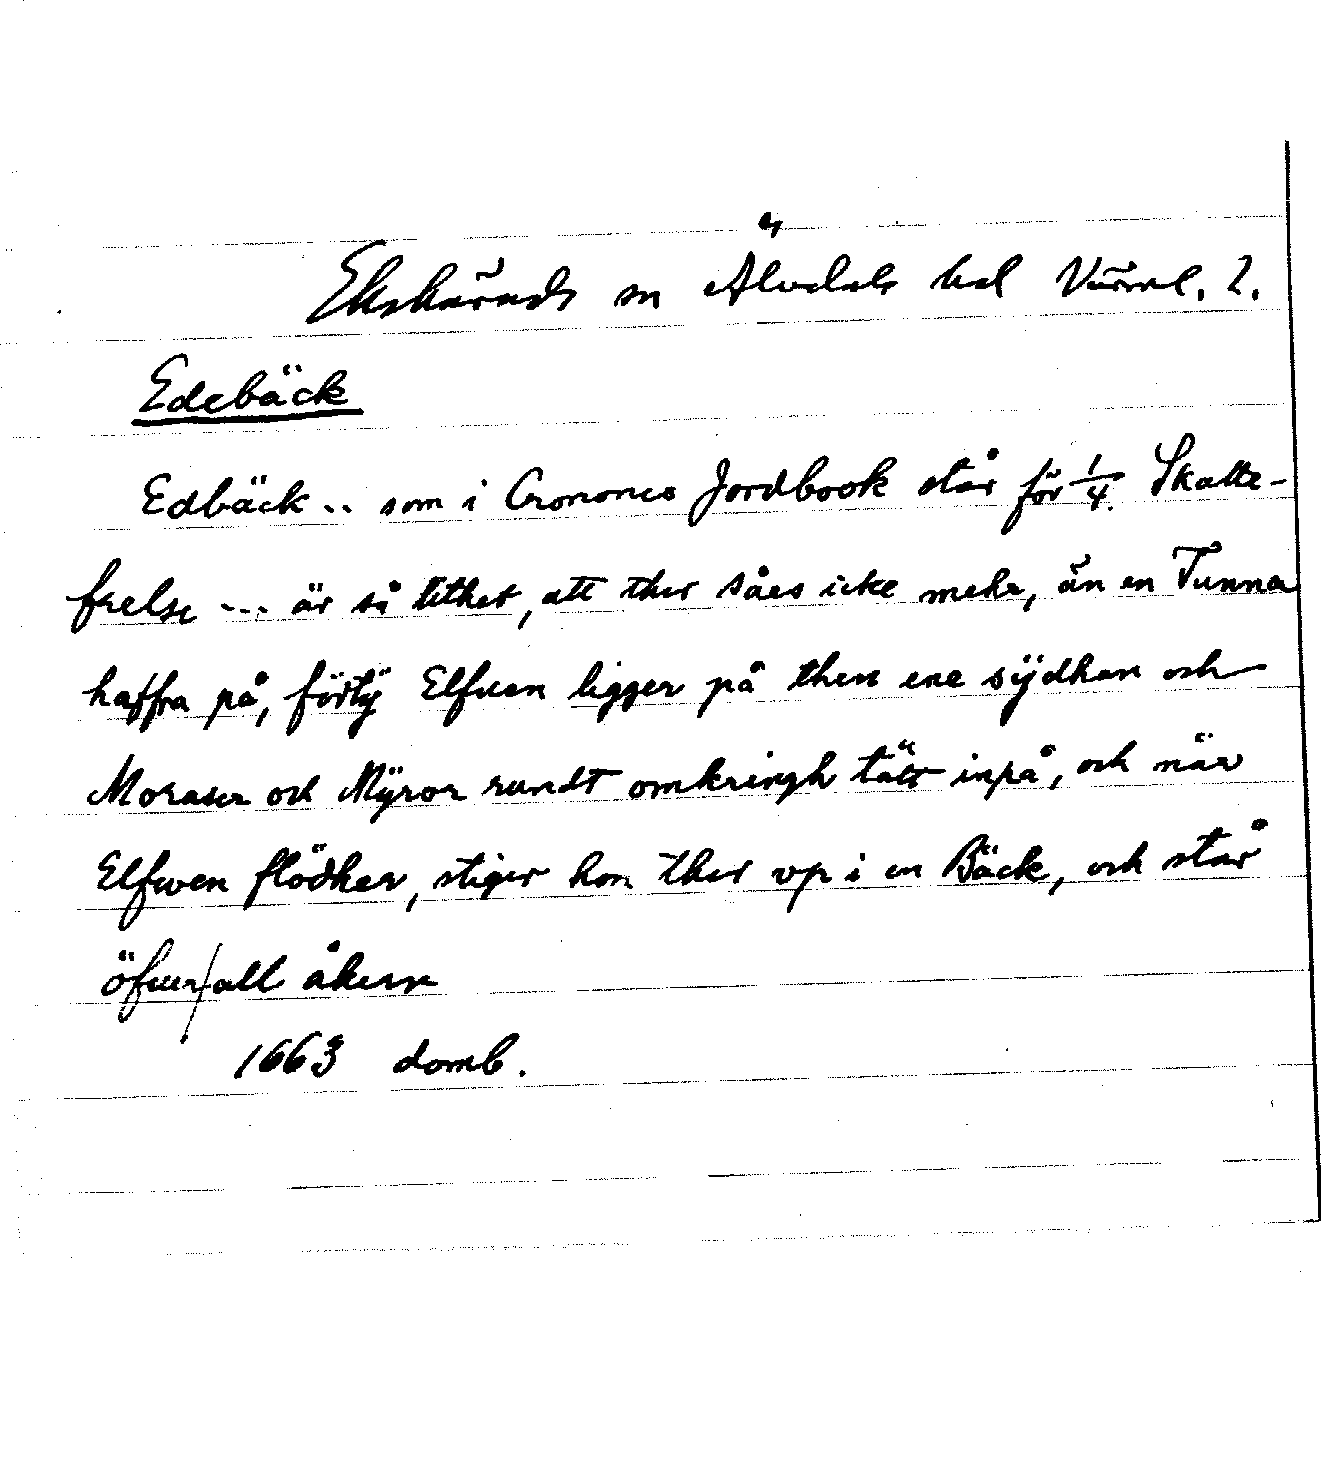 Ekshärads sn Älvdals hd Värml. l.
Edebäck
Edbäck .. som i Cronones Jordbook står för 1/4. Skatte-
frelse --- är så lithet, att ther såes icke mehr, än en Tunna
haffra på, förtÿ Elfwen ligger på then ene sÿdhan och
Moraser och Mÿror rundt omkringh tätt inpå, och när
Elfwen flödher, stiger hon ther vp i en Bäck, och står
öfwer/all åkern
1663 domb.